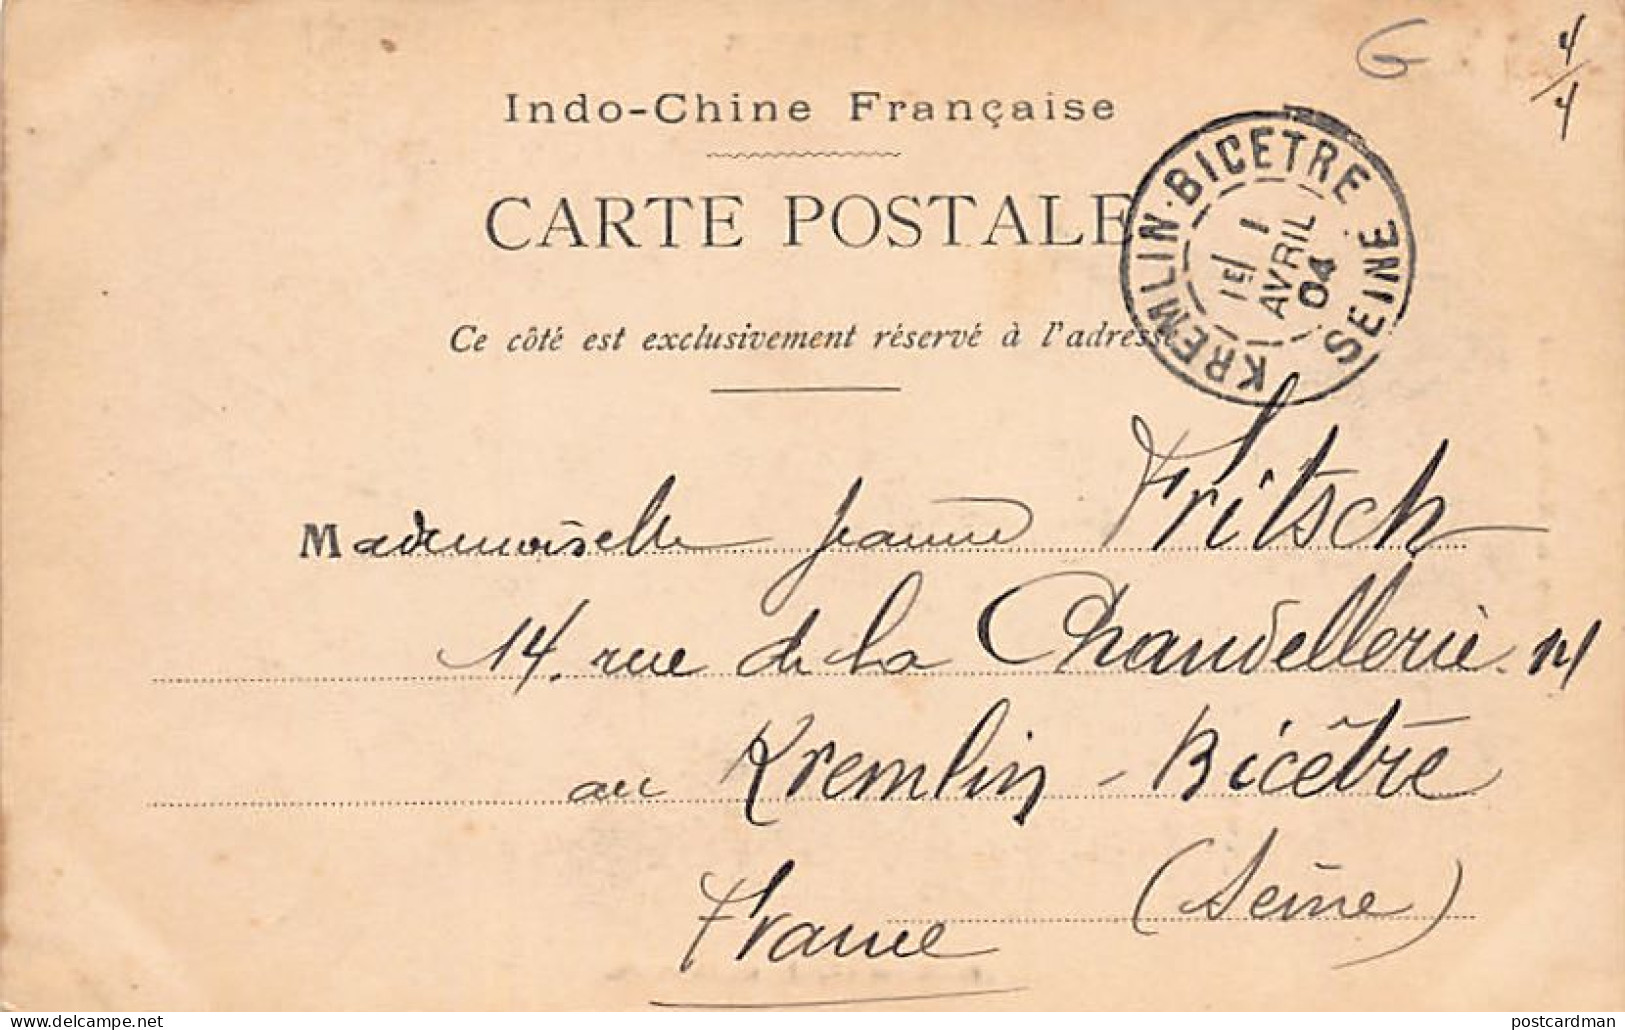 G
4/4
Indo-Chine Française
CARTE POSTALE
KREMLIN-BICETRE SEINE
1E 1
AVRIL
04
Ce côté est exclusivement réservé à l'adresse
Mademoiselle Jeanne Fritsch
14. rue de la Chandellerie. 14
au Kremlin-Bicêtre
(Seine)
France
www.delcampe.net
postcardman